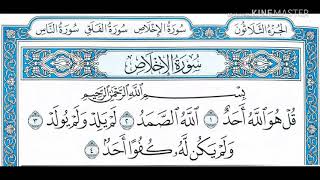 KINEMASTER
الجزء الثلاثون سورة الإخلاص سورة الفلق سورة الناس
سورة الإخلاص
بِسْمِ اللَّهِ الرَّحْمَٰنِ الرَّحِيمِ
قُلْ هُوَ اللَّهُ أَحَدٌ ١ اللَّهُ الصَّمَدُ ٢ لَمْ يَلِدْ وَلَمْ يُولَدْ ٣
وَلَمْ يَكُن لَّهُ كُفُوًا أَحَدٌ